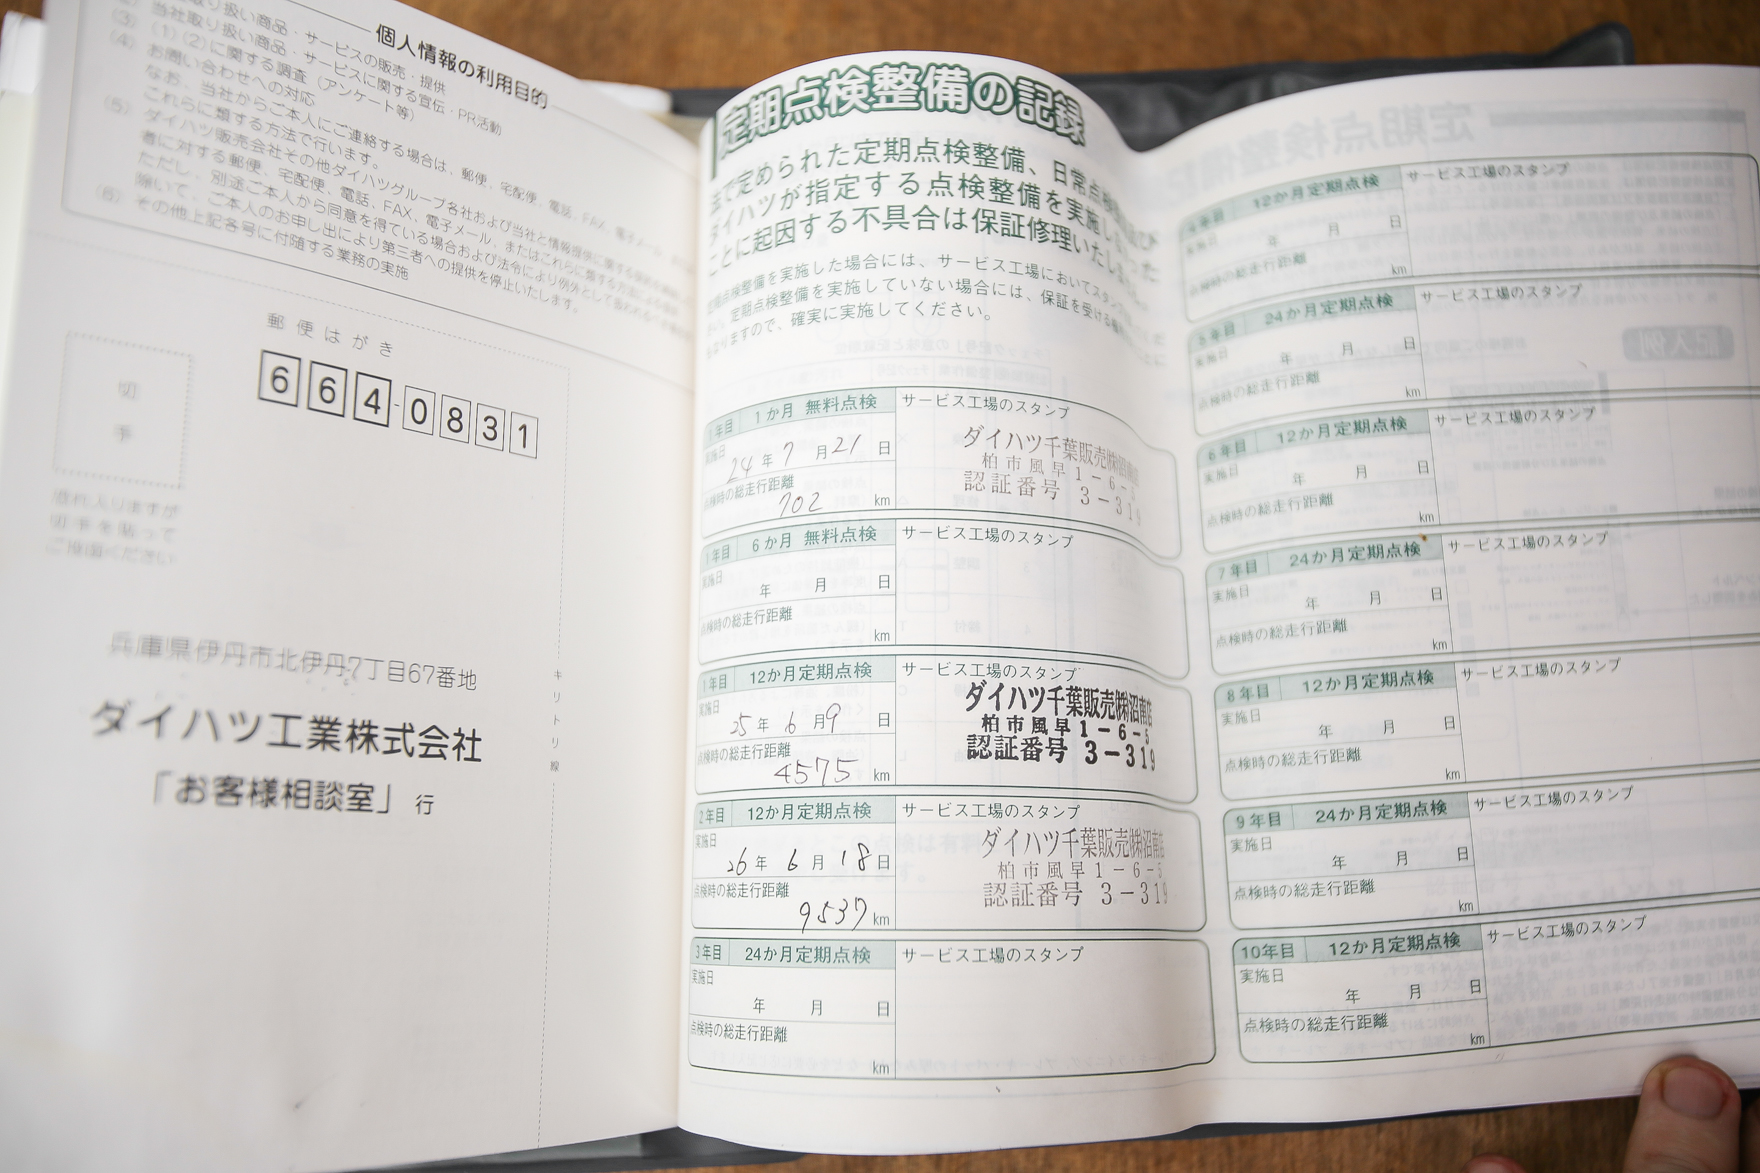 個人情報の利用目的
取り扱い商品・サービスの販売・提供
(3) 当社取り扱い商品・サービスに関する宣伝・PR活動
(4) (1)(2)に関する調査(アンケート等)
お問い合わせへの対応
なお、当社からご本人にご連絡する場合は、郵便、宅配便、電話、FAX、電子メール
これらに類する方法で行います。
(5) ダイハツ販売会社その他ダイハツグループ各社および当社と情報提供に関する
者に対する郵便、宅配便、電話、FAX、電子メール、またはこれらに類する方法による
ただし、別途ご本人から同意を得ている場合および法令により例外として
除いて、ご本人のお申し出により第三者への提供を停止いたします。
(6) その他上記各号に付随する業務の実施
郵便はがき
664-0831
切
手
恐れ入りますが
切手を貼って
ご投函ください
兵庫県伊丹市北伊丹7丁目67番地
ダイハツ工業株式会社
「お客様相談室」 行
キリトリ線
定期点検整備の記録
法で定められた定期点検整備、日常点検
ダイハツが指定する点検整備を実施し
ことに起因する不具合は保証修理いたしま
定期点検整備を実施した場合には、サービス工場においてスタンプ
定期点検整備を実施していない場合には、保証を受ける
ますので、確実に実施してください。
1年目 1か月 無料点検 サービス工場のスタンプ
実施日
24年7月21日
点検時の総走行距離
702 km
ダイハツ千葉販売㈱沼南店
柏市風早1-6-5
認証番号 3-319
1年目 6か月 無料点検 サービス工場のスタンプ
実施日
年 月 日
点検時の総走行距離
km
1年目 12か月定期点検 サービス工場のスタンプ
実施日
25年6月9日
点検時の総走行距離
4575 km
ダイハツ千葉販売㈱沼南店
柏市風早1-6-5
認証番号 3-319
2年目 12か月定期点検 サービス工場のスタンプ
実施日
26年6月18日
点検時の総走行距離
9537 km
ダイハツ千葉販売㈱沼南店
柏市風早1-6-5
認証番号 3-319
3年目 24か月定期点検 サービス工場のスタンプ
実施日
年 月 日
点検時の総走行距離
km
年目 12か月定期点検 サービス工場のスタンプ
実施日
年 月 日
点検時の総走行距離
km
5年目 24か月定期点検 サービス工場のスタンプ
実施日
年 月 日
点検時の総走行距離
km
6年目 12か月定期点検 サービス工場のスタンプ
実施日
年 月 日
点検時の総走行距離
km
7年目 24か月定期点検 サービス工場のスタンプ
実施日
年 月 日
点検時の総走行距離
km
8年目 12か月定期点検 サービス工場のスタンプ
実施日
年 月 日
点検時の総走行距離
km
9年目 24か月定期点検 サービス工場のスタンプ
実施日
年 月 日
点検時の総走行距離
km
10年目 12か月定期点検 サービス工場のスタンプ
実施日
年 月 日
点検時の総走行距離
km